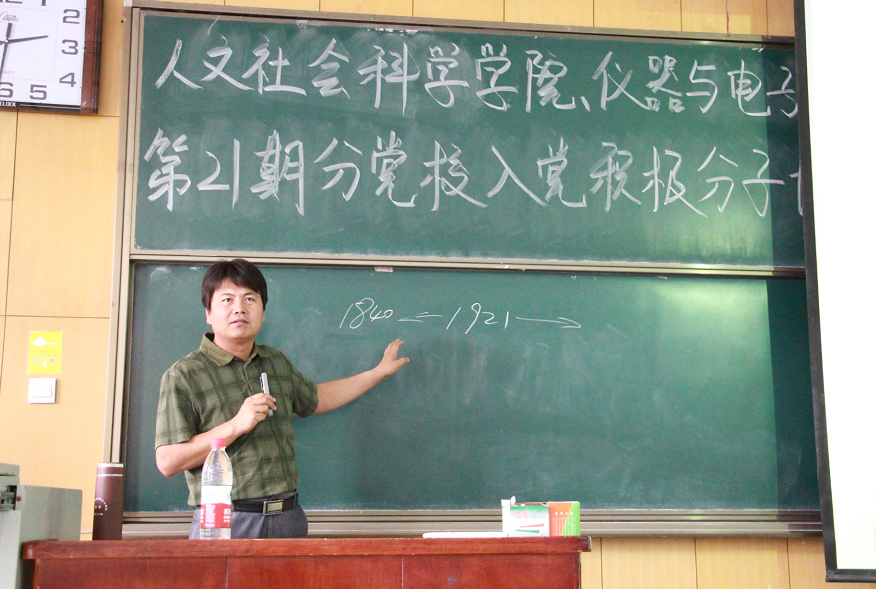 人文社会科学学院、仪器与电子
第21期分党校入党积极分子
1840 ← 1921 →
1
2
3
4
5
6
CLOCK